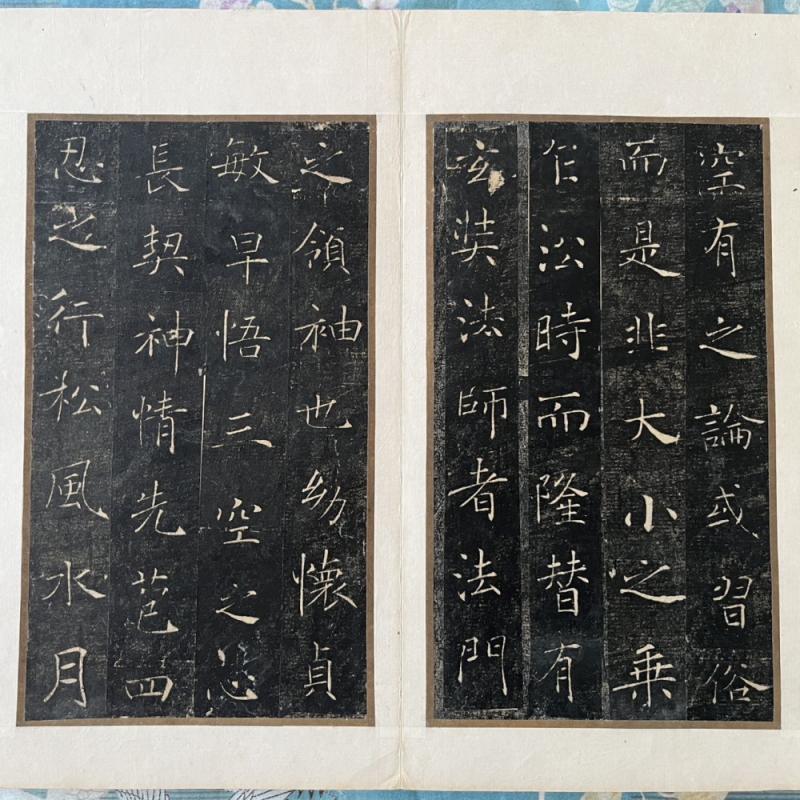 空有之論或習俗
而是非大小之乘
乍沿時而隆替有
玄奘法師者法門
之領袖也幼懷貞
敏早悟三空之心
長契神情先苞四
忍之行松風水月